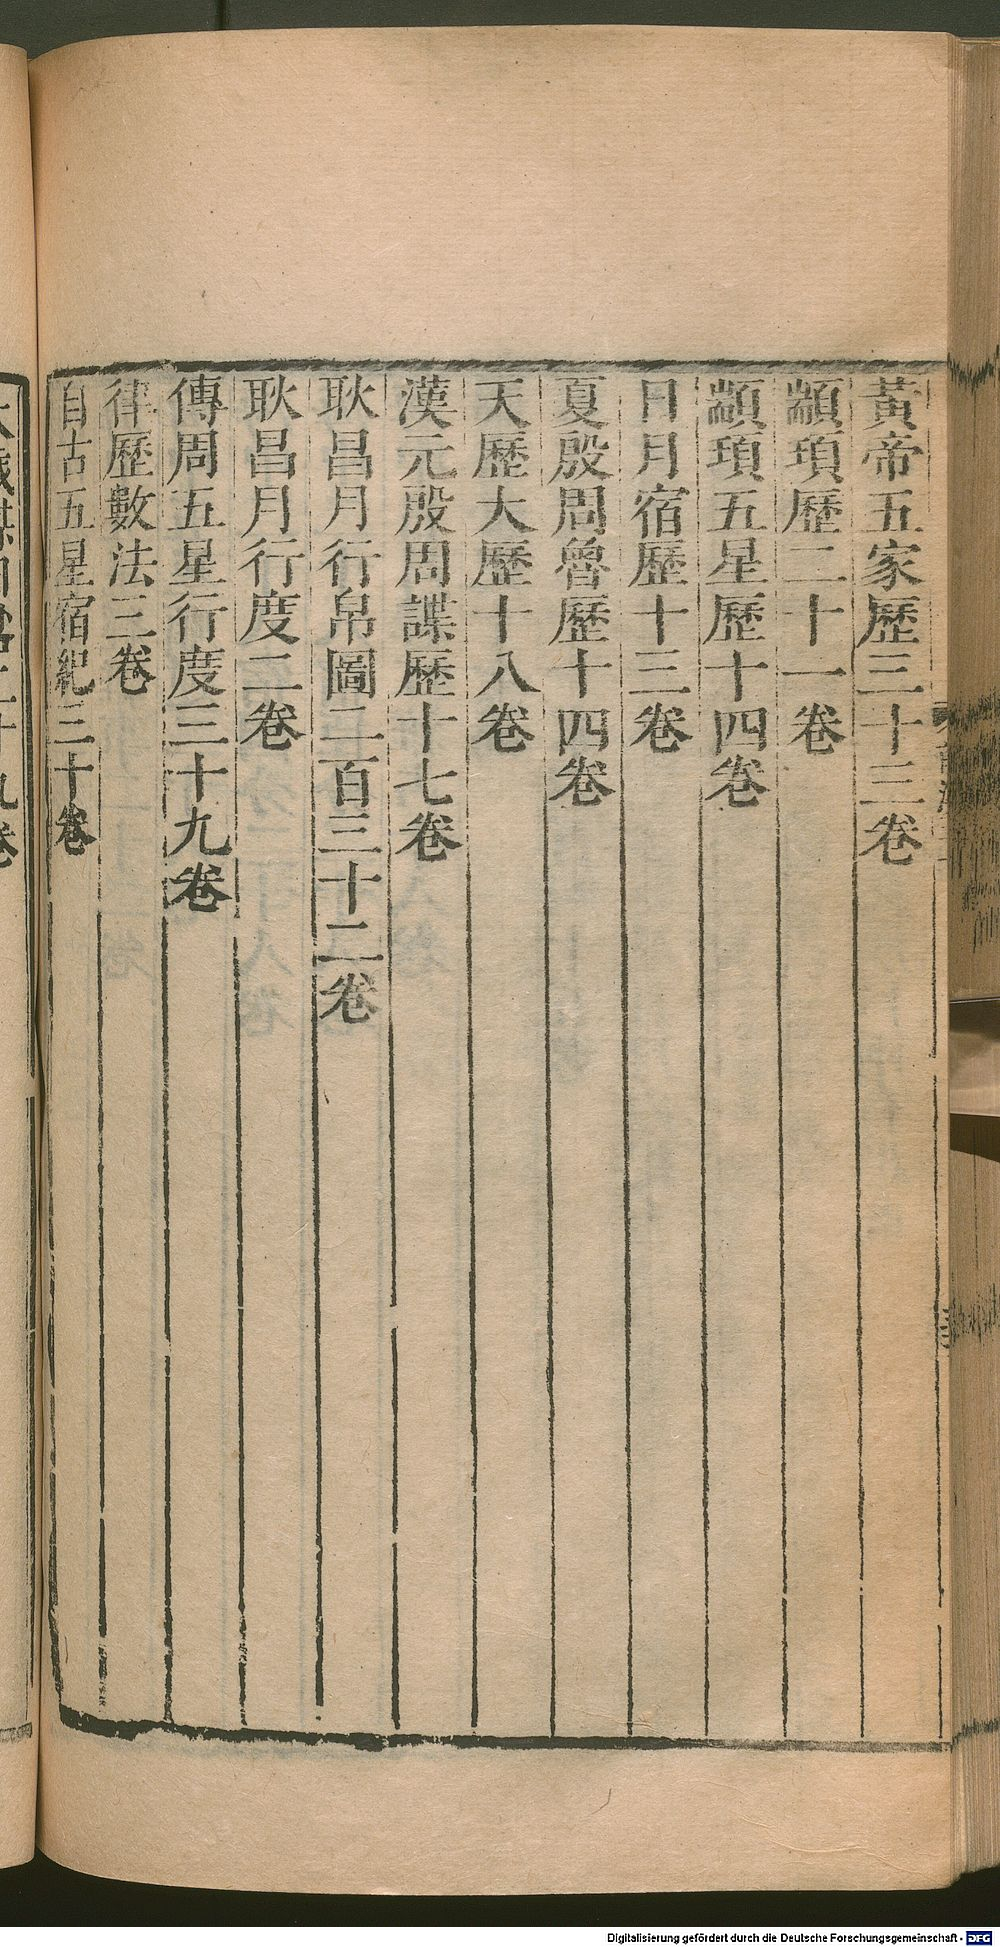 黃帝五家歷三十三卷
顓頊歷二十一卷
顓頊五星歷十四卷
日月宿歷十三卷
夏殷周魯歷十四卷
天歷大歷十八卷
漢元殷周諜歷十七卷
耿昌月行帛圖二百三十二卷
耿昌月行度二卷
傳周五星行度三十九卷
律歷數法三卷
自古五星宿紀三十卷
Digitalisierung gefördert durch die Deutsche Forschungsgemeinschaft - DFG